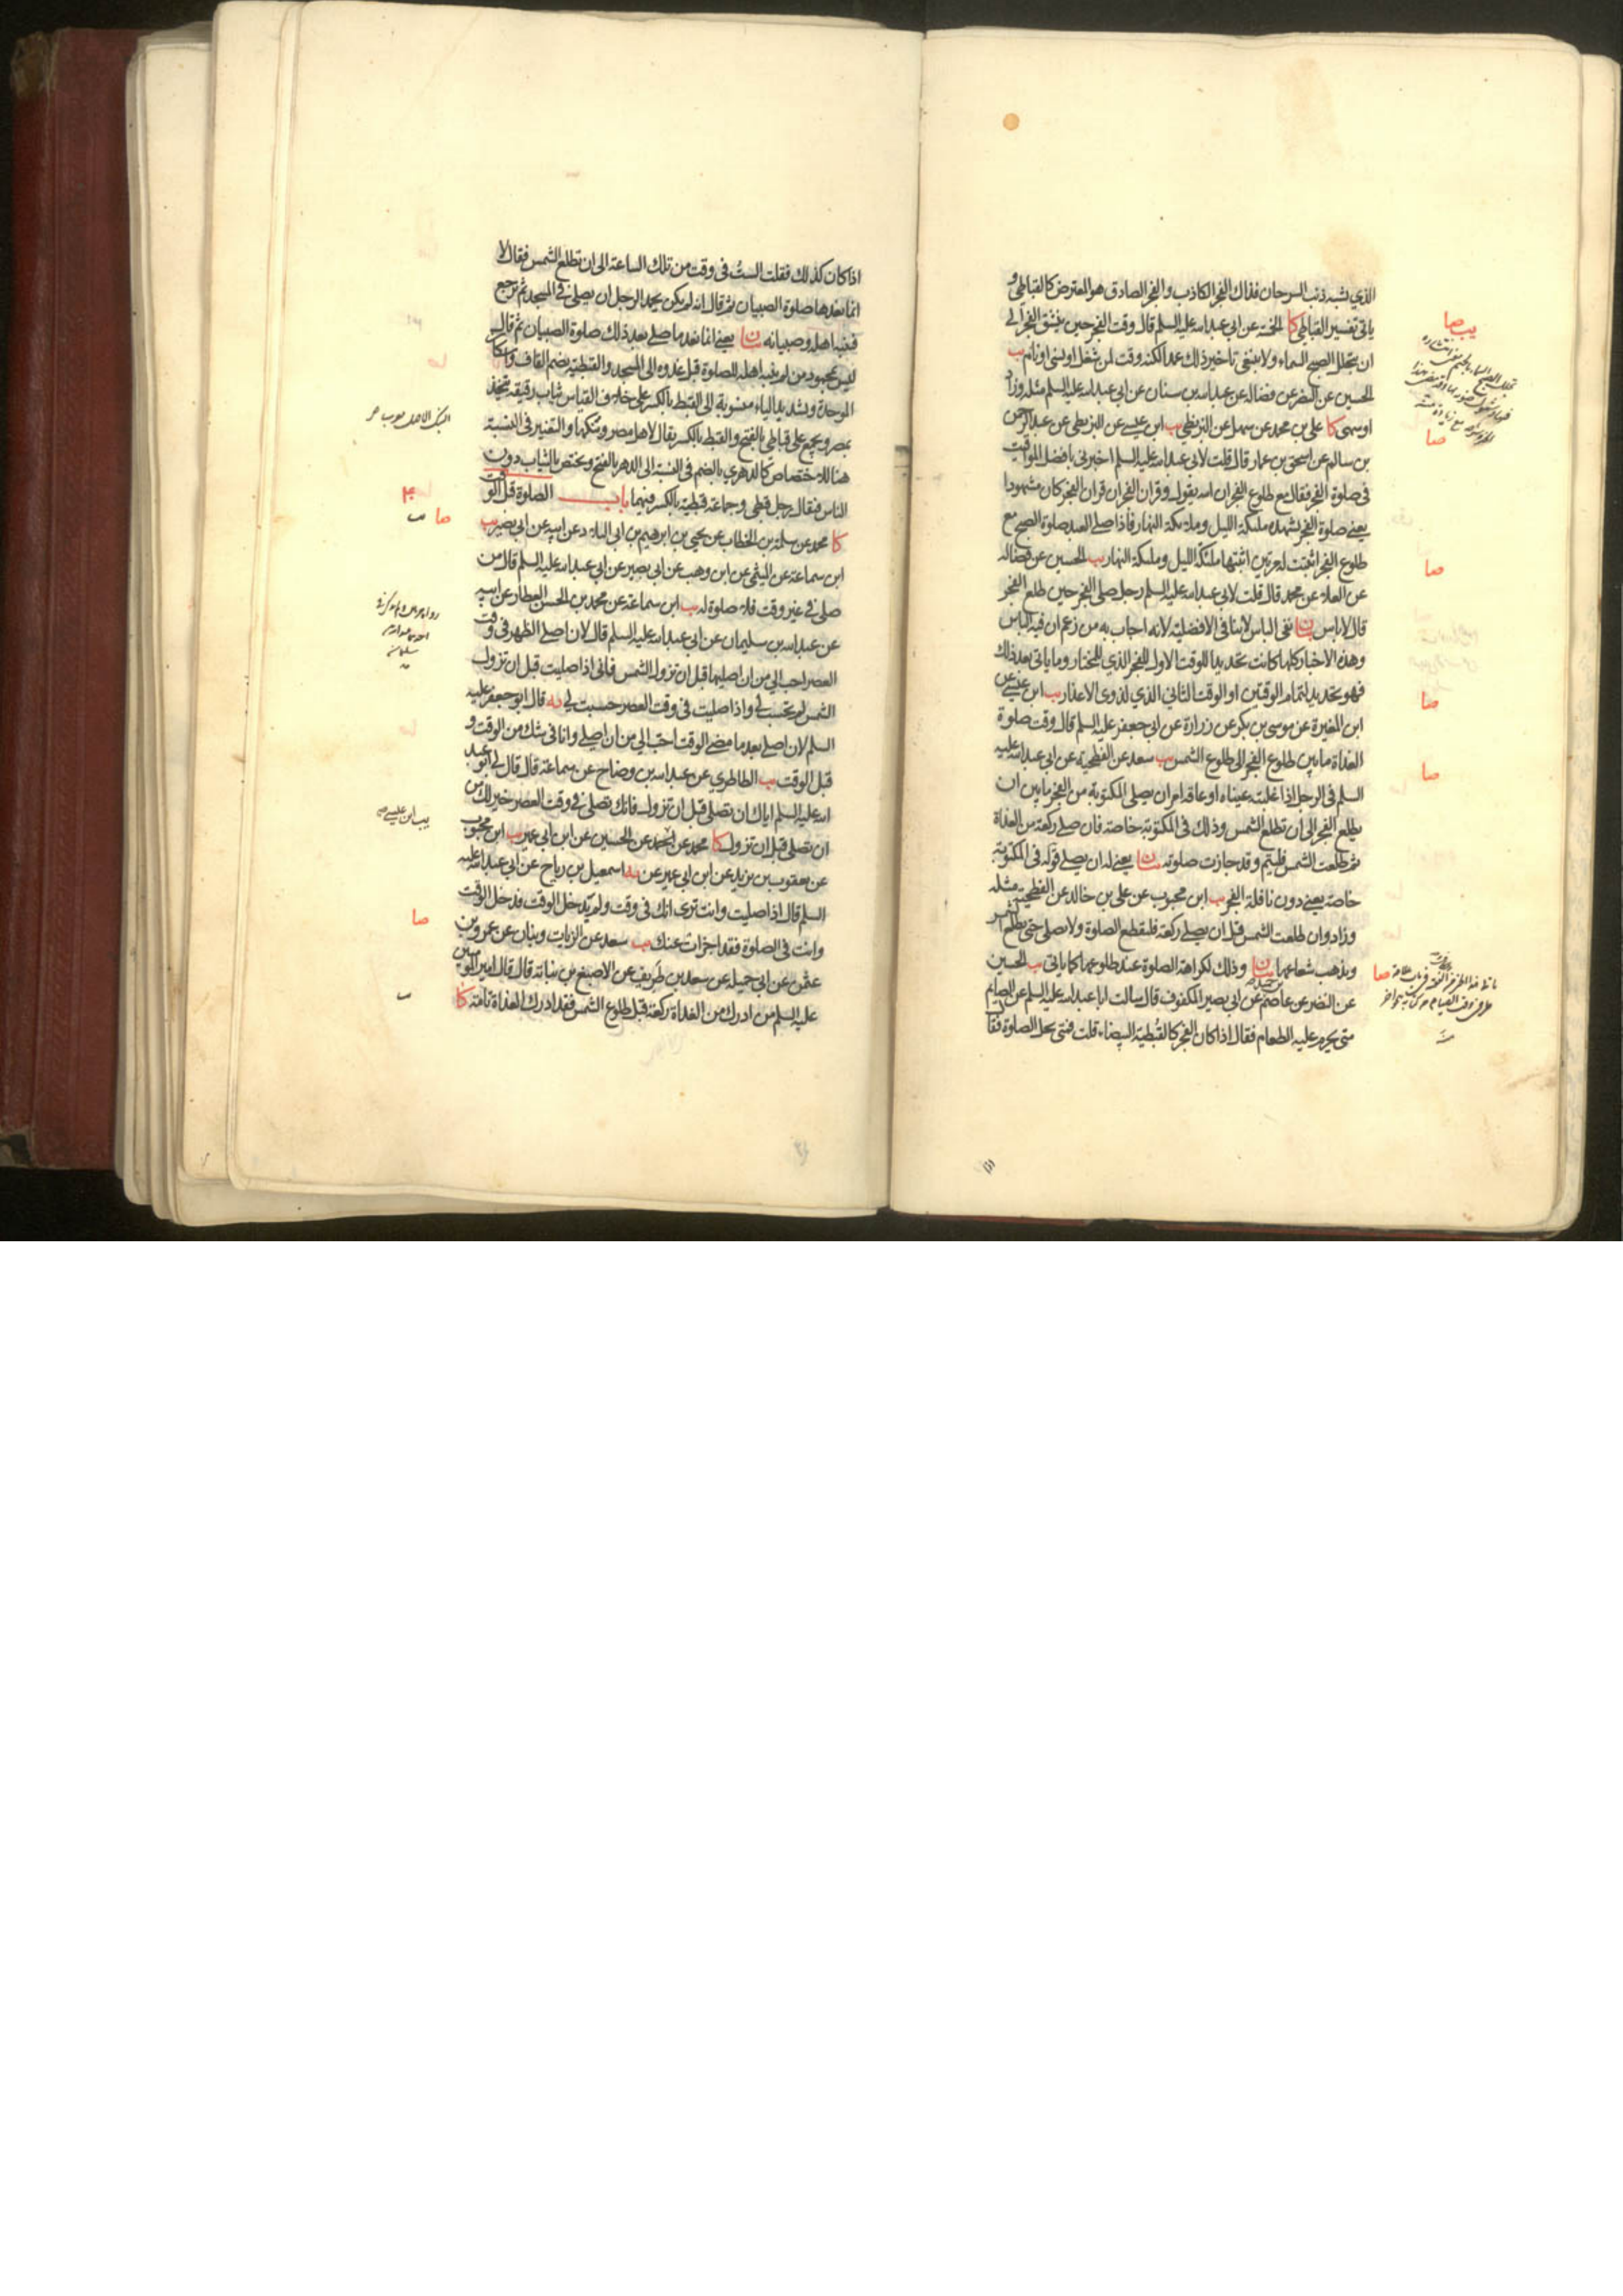 الذي يشبه ذنب السرحان فذاك الفجر الكاذب والفجر الصادق هو المعترض كالقباطي و
ياتي تفسير القباطي كا الخمسة عن ابي عبد الله عليه السلم قال وقت الفجر حين ينشق الفجر الى
ان يتجلل الصبح السماء ولا ينبغي تاخير ذلك عمدا لكنه وقت لمن شغل او نسي او نام يب
الحسين عن النضر عن فضالة عن عبد الله بن سنان عن ابي عبد الله عليه السلم مثله وزاد
او سهى كا علي بن محمد عن سهل عن البزنطي يب ابن عيسى عن البزنطي عن عبد الرحمن
بن سالم عن اسحق بن عمار قال قلت لابي عبد الله عليه السلم اخبرني بافضل المواقيت
في صلوة الفجر فقال مع طلوع الفجر ان الله يقول وقران الفجر ان قران الفجر كان مشهودا
يعني صلوة الفجر تشهده ملئكة الليل وملائكة النهار فاذا صلى العبد صلوة الصبح مع
طلوع الفجر اثبتت له مرتين اثبتها ملئكة الليل وملئكة النهار يب الحسين عن فضالة
عن العلاء عن محمد قال قلت لابي عبد الله عليه السلم رجل صلى الفجر حين طلع الفجر
قال لا باس بيان نفي الباس لا ينافي الافضلية لانه اجاب به من زعم ان فيه الباس
وهذه الاخبار كلها كانت تحديدا للوقت الاول للفجر الذي للمختار وما ياتي بعد ذلك
فهو تحديد لتمام الوقتين او الوقت الثاني الذي لذوي الاعذار يب ابن عيسى عن
ابن المغيرة عن موسى بن بكر عن زرارة عن ابي جعفر عليه السلم قال وقت صلوة
الغداة ما بين طلوع الفجر الى طلوع الشمس يب سعد عن الفطحية عن ابي عبد الله عليه
السلم في الرجل اذا غلبته عيناه او عاقه امر ان يصلي المكتوبة من الفجر ما بين ان
يطلع الفجر الى ان تطلع الشمس وذلك في المكتوبة خاصة فان صلى ركعة من الغداة
ثم طلعت الشمس فليتم وقد جازت صلوته بيان يعني له ان يصلي قوله في المكتوبة
خاصة يعني دون نافلة الفجر يب ابن محبوب عن علي بن خالد عن الفطحية مثله
وزاد وان طلعت الشمس قبل ان يصلي ركعة فليقطع الصلوة ولا يصلي حتى تطلع الشمس
ويذهب شعاعها بيان وذلك لكراهة الصلوة عند طلوعها كما ياتي يب الحسين
عن النضر عن عاصم بن حميد عن ابي بصير المكفوف قال سالت ابا عبد الله عليه السلم عن الصايم
متى يحرم عليه الطعام فقال اذا كان الفجر كالقبطية البيضاء قلت فمتى تحل الصلوة فقال
يب صا
صا
صا
صا
صا
صا
اذا كان كذلك فقلت الست في وقت من تلك الساعة الى ان تطلع الشمس فقال لا
انما نعدها صلوة الصبيان ثم قال انه لم يكن يحمد الرجل ان يصلي في المسجد ثم يرجع
فينبه اهله وصبيانه بيان يعني انما نعد ما صلى بعد ذلك صلوة الصبيان ثم قال
ليس بمحمود من لم ينبه اهله للصلوة قبل غدوه الى المسجد والقبطية بضم القاف واسكان
الموحدة وتشديد الياء منسوبة الى القبط بالكسر على خلاف القياس ثياب رقيقة تتخذ
بمصر ويجمع على قباطي بالفتح والقبط بالكسر يقال لاهل مصر وبنكها والتغيير في النسبة
هنا للاختصاص كالدهري بالضم في النسبة الى الدهر بالفتح ويختص بالثياب دون
الناس فيقال رجل قبطي وجماعة قبطية بالكسر فيهما باب الصلوة قبل الوقت
كا محمد عن سلمة بن الخطاب عن يحيى بن ابرهيم بن ابي البلاد عن ابيه عن ابي بصير يب
ابن سماعة عن الميثمي عن ابن وهب عن ابي بصير عن ابي عبد الله عليه السلم قال من
صلى في غير وقت فلا صلوة له يب ابن سماعة عن محمد بن الحسن العطار عن ابيه
عن عبد الله بن سليمان عن ابي عبد الله عليه السلم قال لان اصلي الظهر في وقت
العصر احب الي من ان اصليها قبل ان تزول الشمس فاني اذا صليت قبل ان تزول
الشمس لم تحسب لي واذا صليت في وقت العصر حسبت لي يه قال ابو جعفر عليه
السلم لان اصلي بعد ما مضى الوقت احب الي من ان اصلي وانا في شك من الوقت و
قبل الوقت يب الطاطري عن عبد الله بن وضاح عن سماعة قال قال لي ابو عبد
الله عليه السلم اياك ان تصلي قبل ان تزول فانك تصلي في وقت العصر خير لك من
ان تصلي قبل ان تزول كا محمد عن احمد عن الحسين عن ابن ابي عمير يب ابن محبوب
عن يعقوب بن يزيد عن ابن ابي عمير عن يه اسمعيل بن رياح عن ابي عبد الله عليه
السلم قال اذا صليت وانت ترى انك في وقت ولم يدخل الوقت فدخل الوقت
وانت في الصلوة فقد اجزات عنك يب سعد عن الزيات وبنان عن عمرو بن
عثمن عن ابي جميلة عن سعد بن طريف عن الاصبغ بن نباتة قال قال امير المومنين
عليه السلم من ادرك من الغداة ركعة قبل طلوع الشمس فقد ادرك الغداة تامة كا
صا
صا